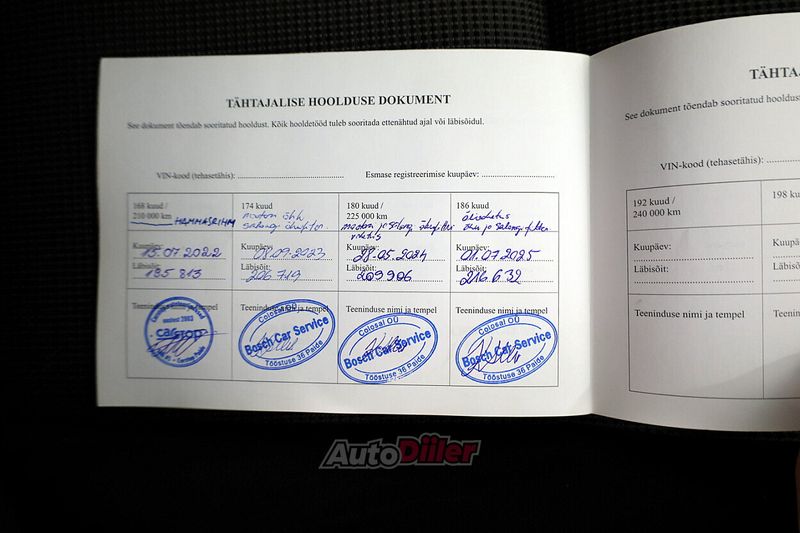 TÄHTAJALISE HOOLDUSE DOKUMENT
See dokument tõendab sooritatud hooldust. Kõik hooldetööd tuleb sooritada ettenähtud ajal või läbisõidul.
VIN-kood (tehasetähis):
Esmase registreerimise kuupäev:
168 kuud /
210 000 km HAMMASRIHM
Kuupäev:
15.07 2022
Läbisõit:
195 813
Teeninduse nimi ja tempel
174 kuud
salongi
Kuupäev:
08.09.2023
206 719
Teeninduse nimi ja tempel
Colosal OÜ
Bosch Car Service
Tööstuse 36 Paide
180 kuud /
225 000 km
ja salongi
Kuupäev:
28.05.2024
Läbisõit:
209906
Teeninduse nimi ja tempel
Colosal OÜ
Bosch Car Service
Tööstuse 36 Paide
186 kuud
õlivahetus
õhu ja salongi filter
Kuupäev:
01.07.2025
Läbisõit:
216.6.32
Teeninduse nimi ja tempel
Colosal OÜ
Bosch Car Service
Tööstuse 36 Paide
TÄHTA
See dokument tõendab sooritatud hooldust
VIN-kood (tehasetähis):
192 kuud /
240 000 km
Kuupäev:
Läbisõit:
Teeninduse nimi ja tempel
198 ku
Kuupäe
Läbisõi
Teenin
AutoDiiler